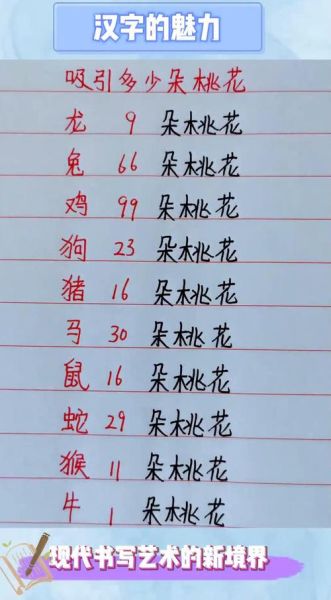 汉字的魅力
吸引多少朵桃花
龙 9 朵桃花
兔 66 朵桃花
鸡 99 朵桃花
狗 23 朵桃花
猪 16 朵桃花
马 30 朵桃花
鼠 16 朵桃花
蛇 29 朵桃花
猴 11 朵桃花
牛 1 朵桃花
现代书写艺术的新境界